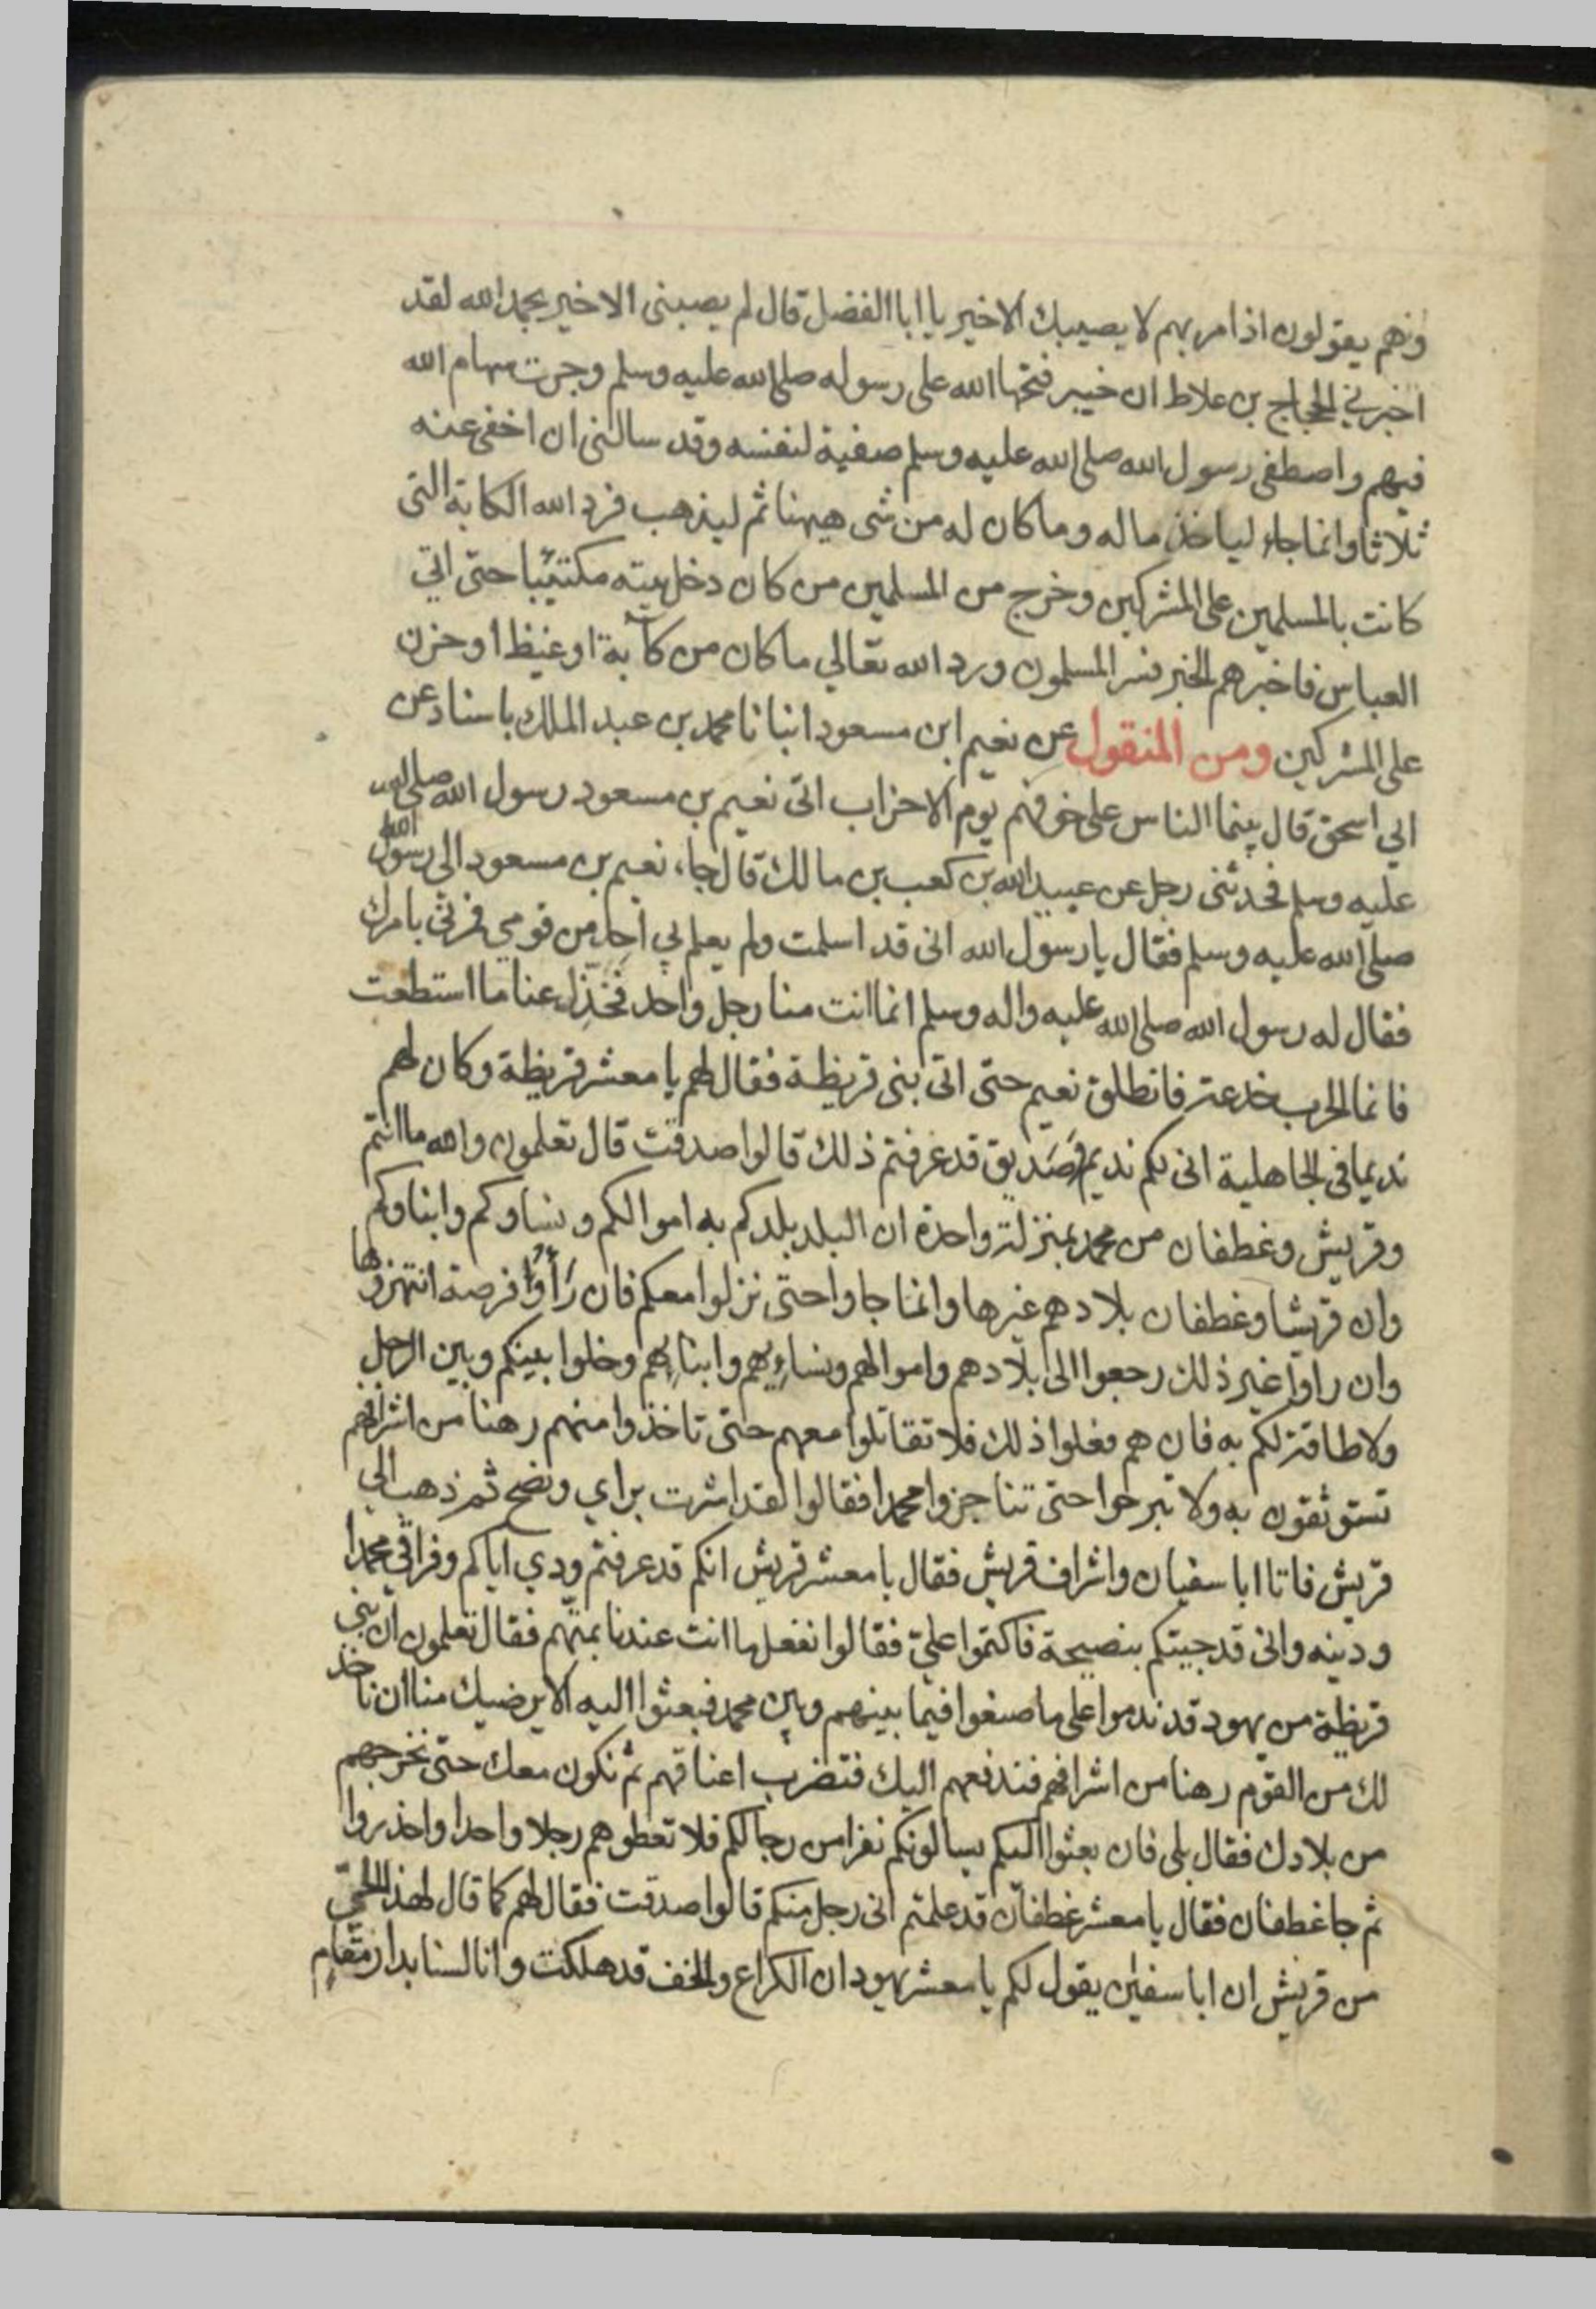 وهم يقولون اذا مر بهم لا يصيبك الا خير يا ابا الفضل قال لم يصبنى الا خير بحمد الله لقد
اخبرني الحجاج بن علاط ان خيبر فتحها الله على رسوله صلى الله عليه وسلم وجرت سهام الله
فيهم واصطفى رسول الله صلى الله عليه وسلم صفية لنفسه وقد سالنى ان اخفى عنه
ثلاثا وانما جاء لياخذ ماله وما كان له من شى ههنا ثم ليذهب فرد الله الكابة التى
كانت بالمسلمين على المشركين وخرج من المسلمين من كان دخل بيته مكتئبا حتى اتي
العباس فاخبرهم الخبر فسر المسلمون ورد الله تعالي ما كان من كآبة او غيظ او حزن
على المشركين ومن المنقول عن نعيم ابن مسعود انبانا محمد بن عبد الملك باسناد عن
ابي اسحق قال بينما الناس على خوفهم يوم الاحزاب اتى نعيم بن مسعود رسول الله صلى الله
عليه وسلم فحدثنى رجل عن عبيد الله بن كعب بن مالك قال جاء نعيم بن مسعود الى رسول الله
صلى الله عليه وسلم فقال يا رسول الله انى قد اسلمت ولم يعلم بي احد من قومي فمرنى بامرك
فقال له رسول الله صلى الله عليه واله وسلم انما انت منا رجل واحد فخذل عنا ما استطعت
فانما الحرب خدعة فانطلق نعيم حتى اتى بنى قريظة فقال لهم يا معشر قريظة وكان لهم
نديما فى الجاهلية انى لكم نديم وصديق قد عرفتم ذلك قالوا صدقت قال تعلمون والله ما انتم
وقريش وغطفان من محمد بمنزلة واحدة ان البلد بلدكم به اموالكم ونساوكم وابناوكم
وان قريشا وغطفان بلادهم غيرها وانما جاوا حتى نزلوا معكم فان رأوا فرصة انتهزوها
وان راوا غير ذلك رجعوا الى بلادهم واموالهم ونساءيهم وابنايهم وخلوا بينكم وبين الرجل
ولا طاقة لكم به فان هم فعلوا ذلك فلا تقاتلوا معهم حتى تاخذوا منهم رهنا من اشرافهم
تستوثقون به ولا تبرحوا حتى تناجزوا محمدا فقالوا لقد اشرت براي ونصح ثم ذهب الي
قريش فاتا ابا سفيان واشراف قريش فقال يا معشر قريش انكم قد عرفتم ودي اياكم وفراقي محمدا
ودينه وانى قد جيتكم بنصيحة فاكتموا عليّ فقالوا نفعل ما انت عندنا بمتهم فقال تعلمون ان بني
قريظة من يهود قد ندموا على ما صنعوا فيما بينهم وبين محمد فبعثوا اليه الا يرضيك منا ان ناخذ
لك من القوم رهنا من اشرافهم فندفعهم اليك فتضرب اعناقهم ثم نكون معك حتى نخرجهم
من بلادك فقال بلى فان بعثوا اليكم يسالونكم نفرا من رجالكم فلا تعطوهم رجلا واحدا واحذروا
ثم جا غطفان فقال يا معشر غطفان قد علمتم انى رجل منكم قالوا صدقت فقال لهم كما قال لهذا الحيّ
من قريش ان ابا سفين يقول لكم يا معشر يهود ان الكراع والخف قد هلكت وانا لسنا بدار مقام